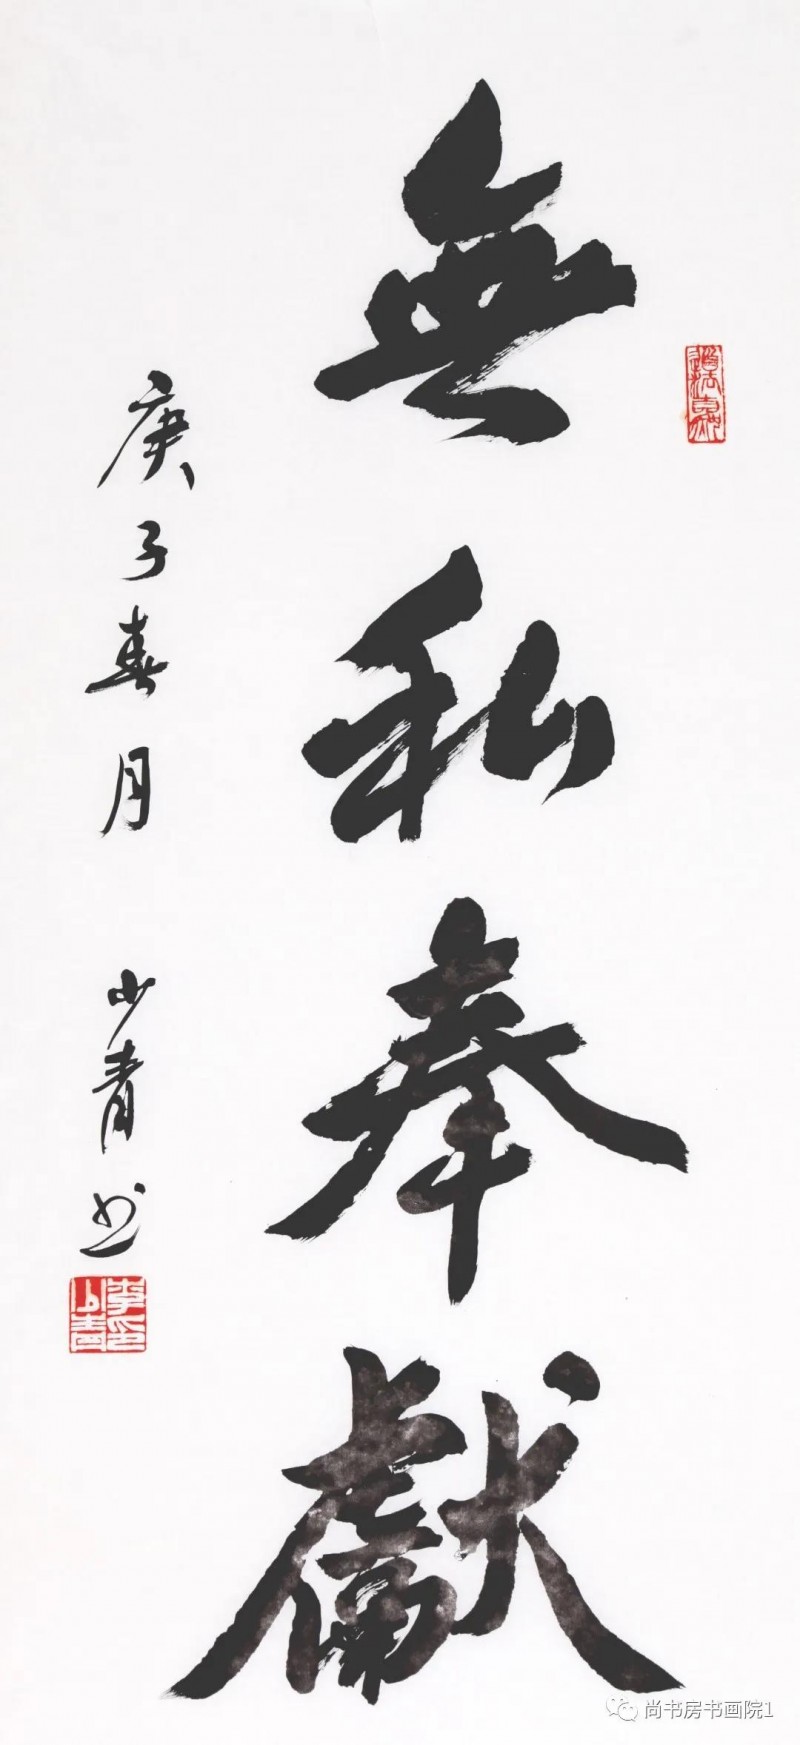 無私奉獻
庚子春月 少青书
李少青印
尚书房书画院1